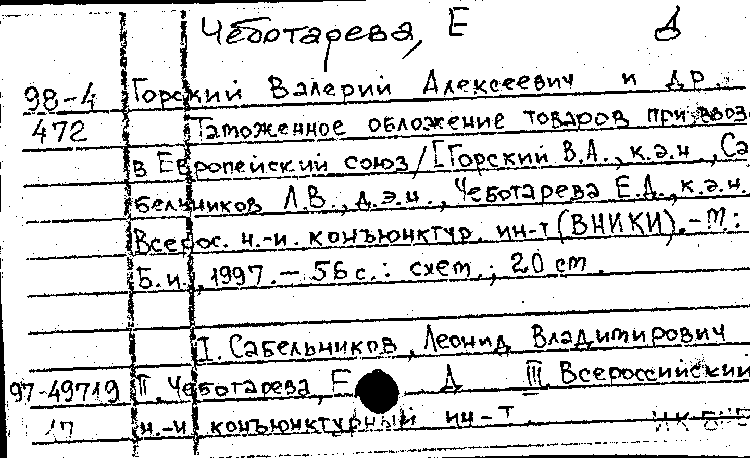 Чеботарева, Е Д
98-4 Горский Валерий Алексеевич и др.
472 Таможенное обложение товаров при ввоз
в Европейский союз/[Горский В.А., к.э.н., Са
бельников Л.В., д.э.н., Чеботарева Е.Д., к.э.н.
Всерос. н.-и. конъюнктур. ин-т (ВНИКИ). - М:
Б.и., 1997. - 56 с.: схем.; 20 cm.
I. Сабельников, Леонид Владимирович
97-49719 II. Чеботарева, Е Д III. Всероссийский
17 н.-и. конъюнктурный ин-т